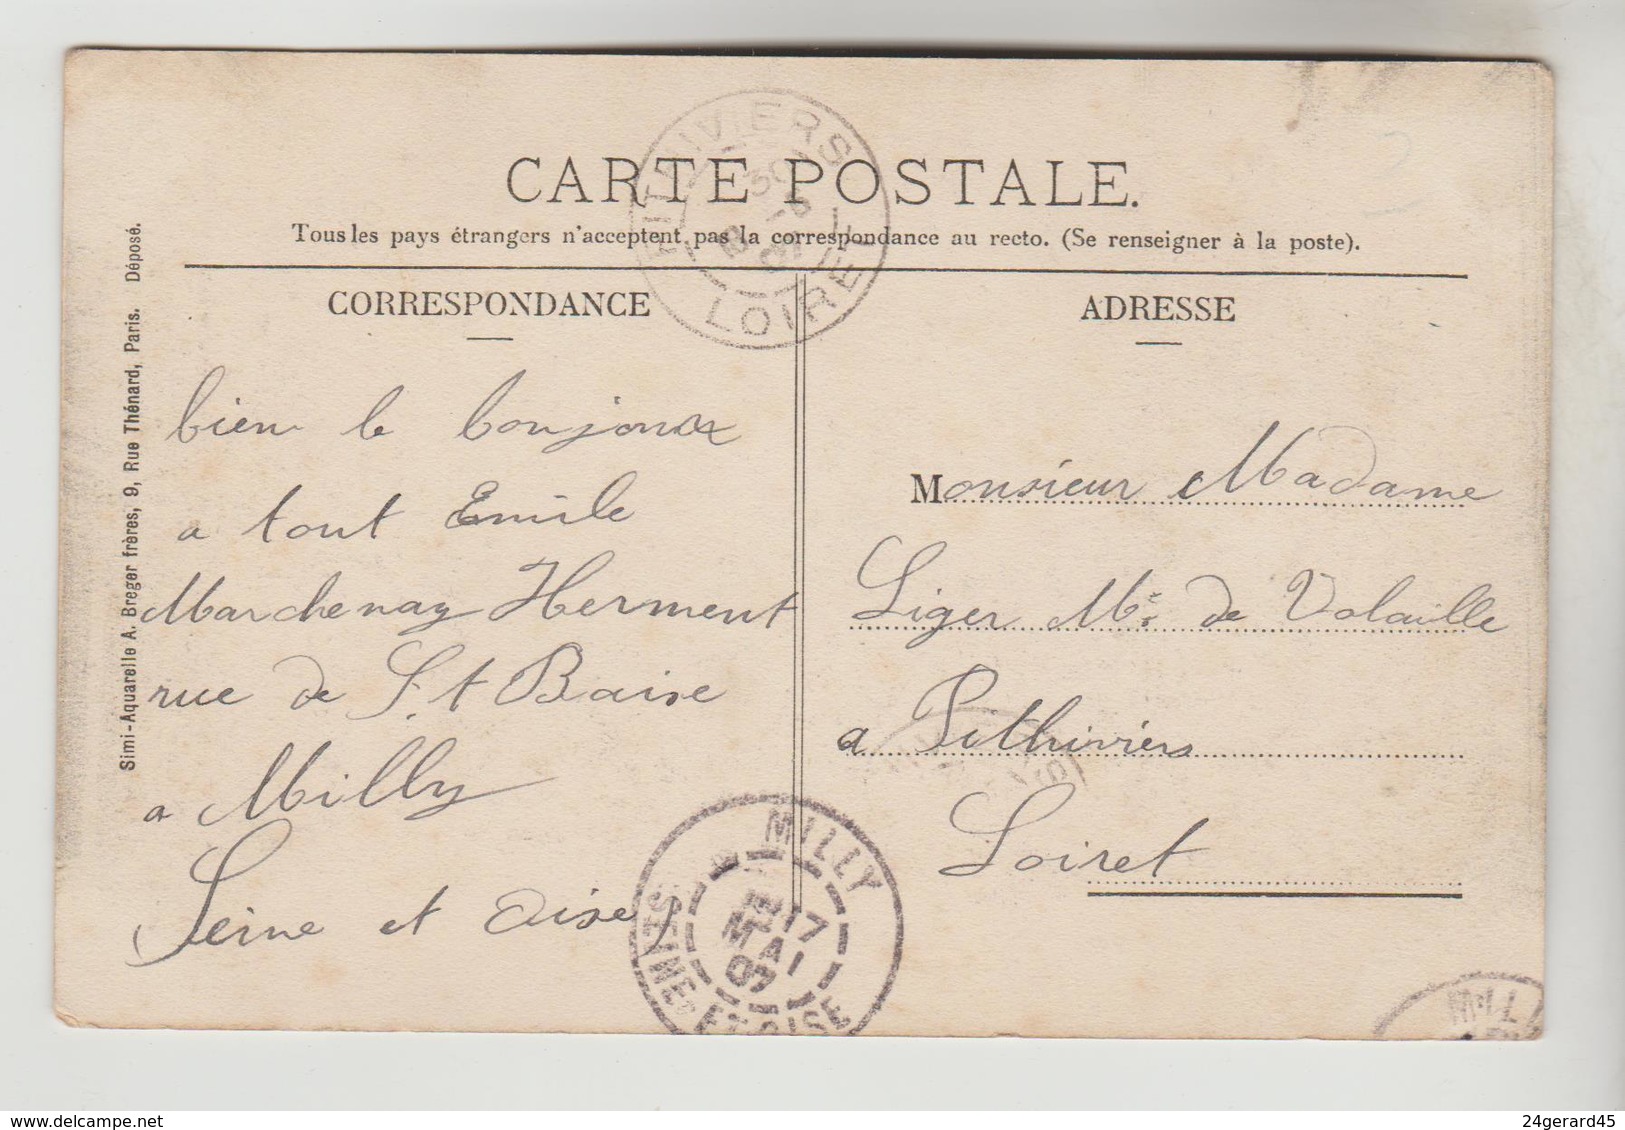 CARTE POSTALE.
Tous les pays étrangers n'acceptent pas la correspondance au recto. (Se renseigner à la poste).
CORRESPONDANCE
bien le bonjour
a tout Emile
Marchenay Herment
rue de S.t Baise
a Milly
Seine et Oise
ADRESSE
Monsieur Madame
Liger Md. de Volaille
a Pithiviers
Loiret
Simi-Aquarelle A. Breger frères, 9, Rue Thénard, Paris. Déposé.
PITHIVIERS
LOIRET
MILLY
17
MAI
07
SEINE ET OISE
MILL
2
delcampe.net
24gerard45